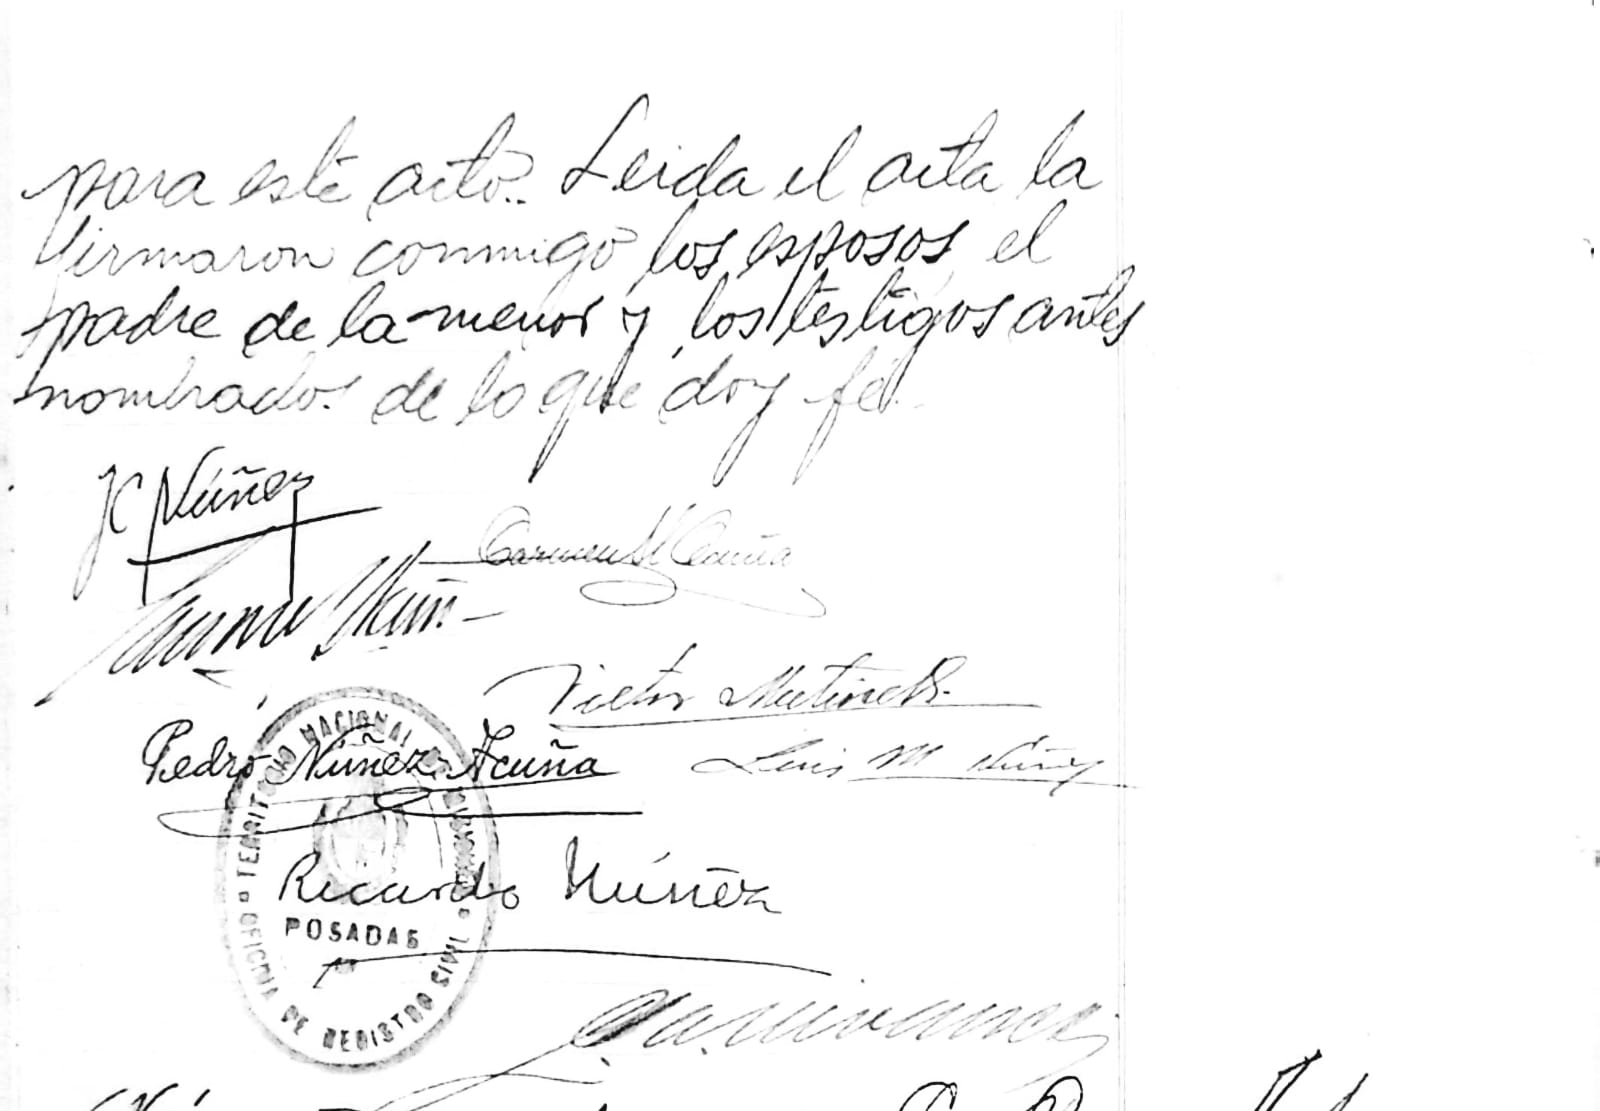 para este acto. Leida el acta la
firmaron conmigo los esposos, el
padre de la menor y los testigos antes
nombrados de lo que doy fé.
JC Núñez
Carmen Acuña
Victor
Pedro Núñez Acuña
Luis M Núñez
Ricardo Núñez
TERRITORIO NACIONAL
POSADAS
OFICINA DE REGISTRO CIVIL